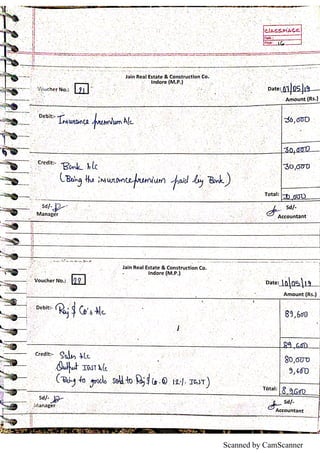 CLASSMATE
Date :
Page : 16
Jain Real Estate & Construction Co.
Indore (M.P.)
Voucher No.: 21
Date: 07/05/19
Amount (Rs.)
Debit:- Insurance premium A/c
30,000
30,000
Credit:- Bank A/c
30,000
(Being the insurance premium paid by Bank)
Total: 30,000
Sd/-
Manager
Sd/-
Accountant
Jain Real Estate & Construction Co.
Indore (M.P.)
Voucher No.: 22
Date: 10/05/19
Amount (Rs.)
Debit:- Raj & Co's A/c
89,600
89,600
Credit:- Sales A/c 80,000
Output IGST A/c 9,600
(Being to goods sold to Raj & Co. @ 12% IGST)
Total: 8,9600
Sd/-
Manager
Sd/-
Accountant
Scanned by CamScanner